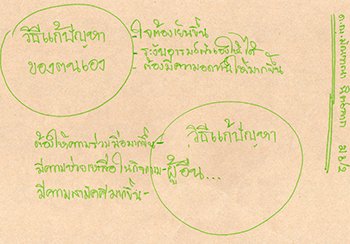 วิธีแก้ปัญหา
ของตนเอง
- ใจต้องเย็นขึ้น
- ระงับอารมณ์ตัวเองให้ได้
- ต้องมีความอดทนให้มากขึ้น
วิธีแก้ปัญหา
ผู้อื่น...
ต้องให้ความร่วมมือมากขึ้น-
มีความ ในกิจกรรม-
มีความ มากขึ้น-
ด.ญ.